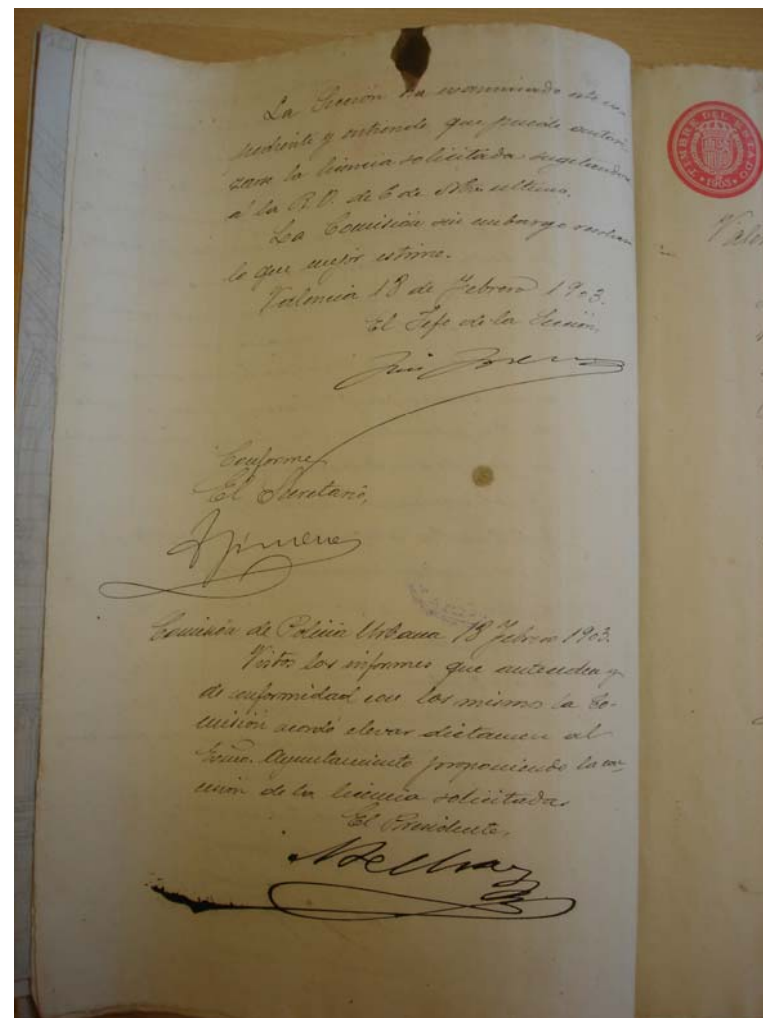 La Sección ha examinado este es-
pediente y entiende que puede autori-
zarse la licencia solicitada sugetandose
á la R. O. de 6 de último.
La Comisión sin embargo resolverá
lo que mejor estime.
Valencia 18 de Febrero 1903.
El Jefe de la Sección,
Conforme
El Secretario,
Comisión de Policia Urbana 18 Febrero 1903.
Vistos los informes que anteceden y
de conformidad con los mismos la Co-
misión acordó elevar dictamen al
Excmo. Ayuntamiento proponiendo la con-
cesión de la licencia solicitada.
El Presidente,
TIMBRE DEL ESTADO
1903